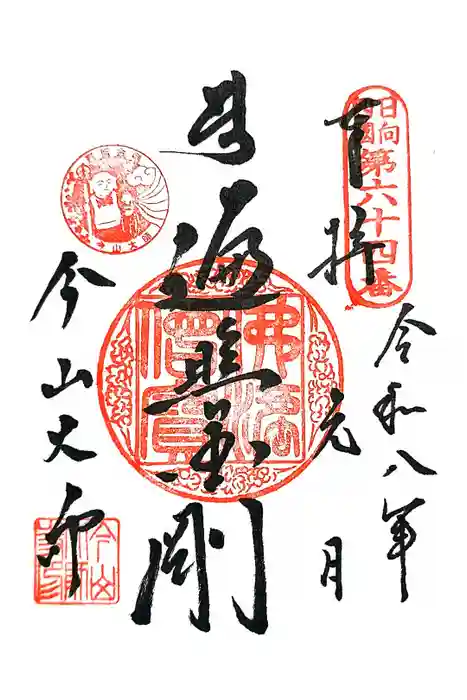 日向国
第六十四番
奉拝
令和八年
元月
南無
遍照金剛
佛法僧寳
今山大師